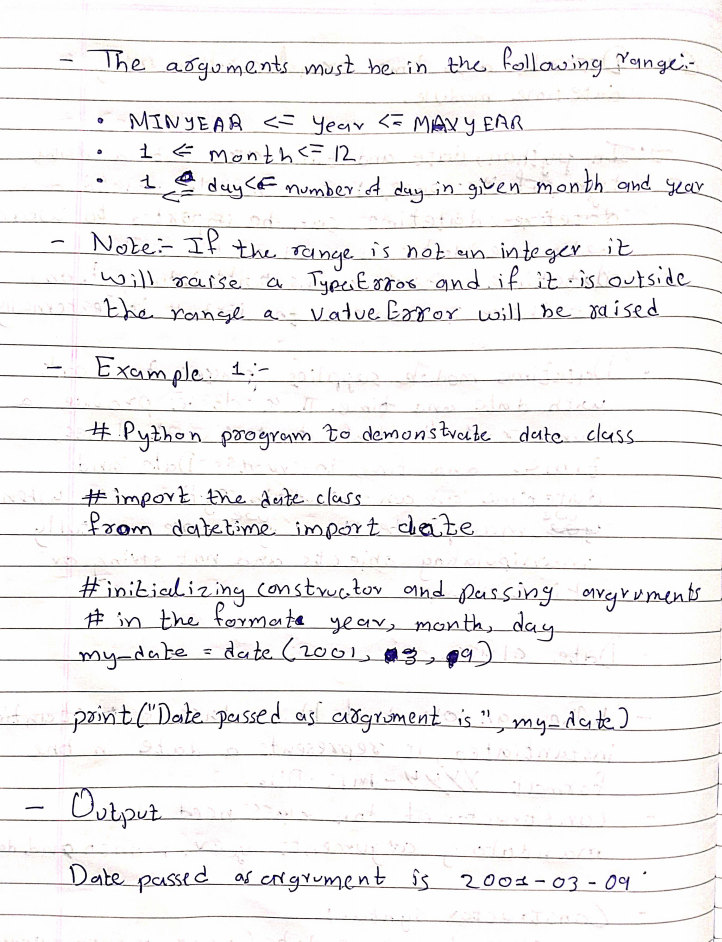 - The arguments must be in the following range:-
• MINYEAR <= year <= MAXYEAR
• 1 <= month <= 12
• 1 <= day <= number of day in given month and year
- Note:- If the range is not an integer it
will raise a TypeError and if it is outside
the range a valueError will be raised
- Example 1:-
# Python program to demonstrate date class
# import the date class
from datetime import date
# initializing constructor and passing argruments
# in the formate year, month, day
my_date = date (2001, 3, 9)
print ("Date passed as argrument is", my_date)
- Output
Date passed as argrument is 2001-03-09